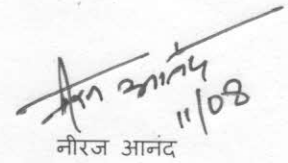 नीरज आनंद
11/08
नीरज आनंद